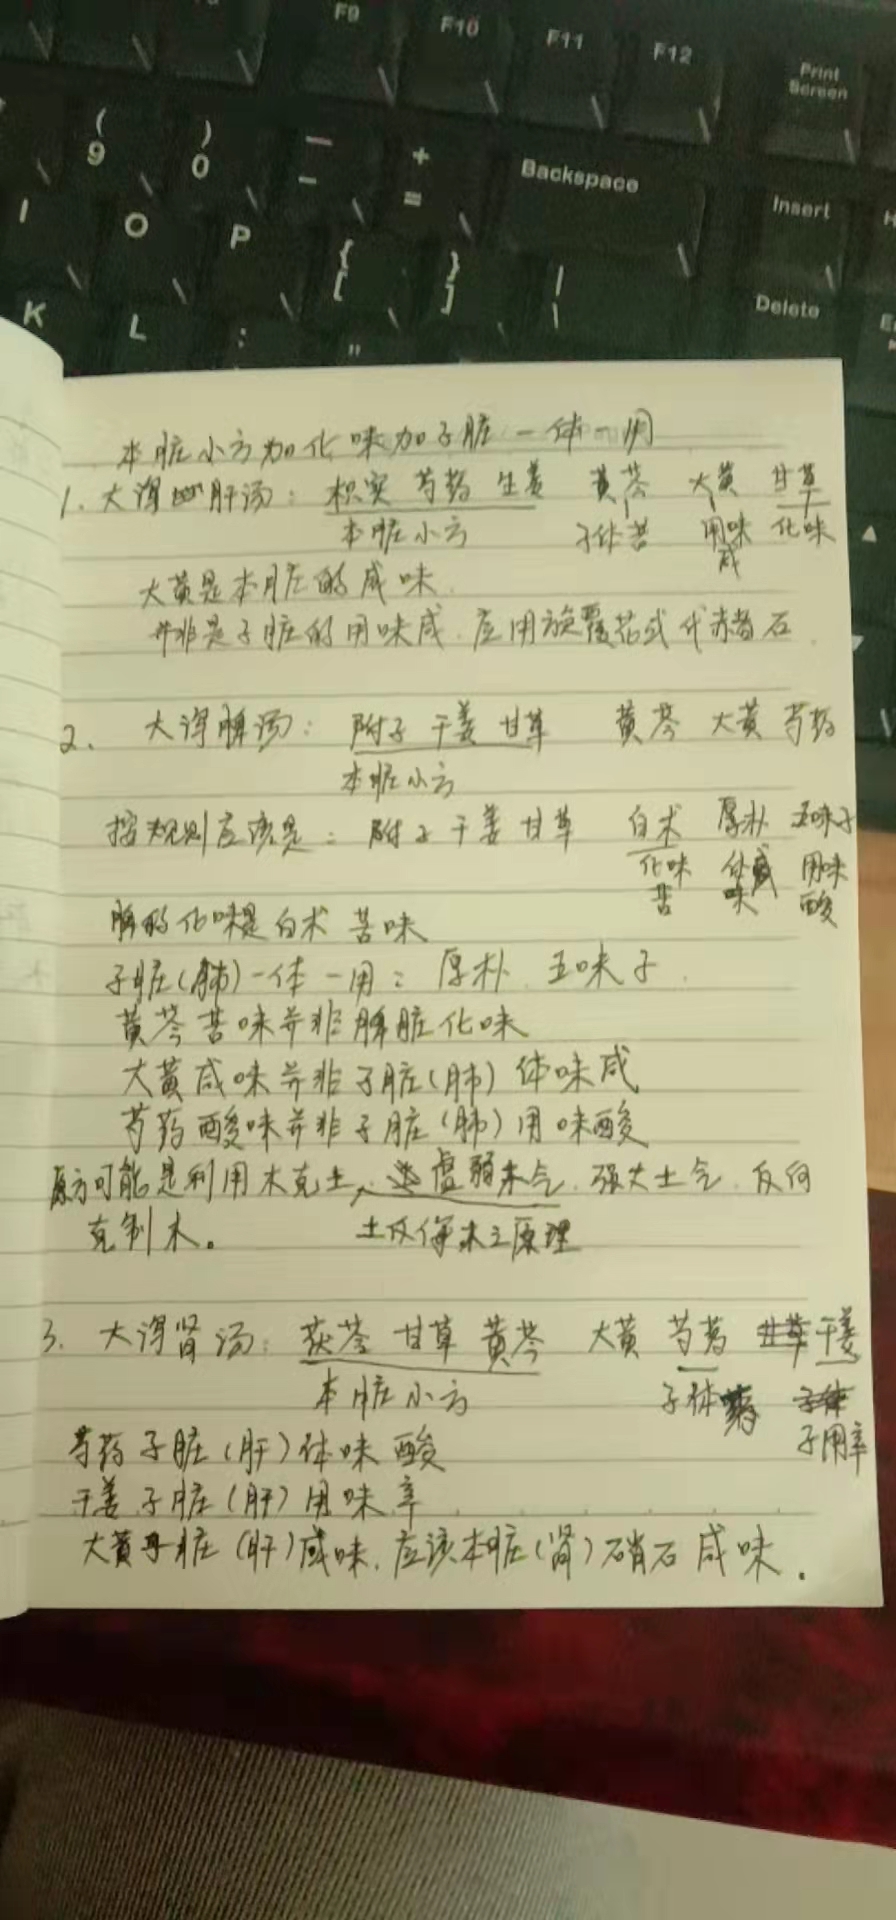 F9 F10 F11 F12 Print Screen
( 9 ) 0 — - + = Backspace Insert
I O P { [ } ] | \ Delete
K L : "
本脏小方加化味加子脏一体一用
1. 大泻肝汤: 枳实 芍药 生姜 黄芩 大黄 甘草
本脏小方 子体苦 用味咸 化味
大黄是本脏的咸味
并非是子脏的用味咸. 应用旋覆花或代赭石.
2. 大泻脾汤: 附子 干姜 甘草 黄芩 大黄 芍药
本脏小方
按规则应该是: 附子 干姜 甘草 白术 厚朴 五味子
化味苦 体味咸 用味酸
脾的化味是白术 苦味
子脏(肺)一体一用: 厚朴. 五味子.
黄芩苦味并非脾脏化味
大黄咸味并非子脏(肺)体味咸
芍药酸味并非子脏(肺)用味酸
原方可能是利用木克土, 虚弱木气. 强大土气. 反向
克制木。 土反侮木之原理
3. 大泻肾汤: 茯苓 甘草 黄芩 大黄 芍药 甘草 干姜
本脏小方 子体 子体
子用辛
芍药子脏(肝)体味酸
干姜子脏(肝)用味辛
大黄子脏(肝)咸味. 应该本脏(肾)硝石咸味.